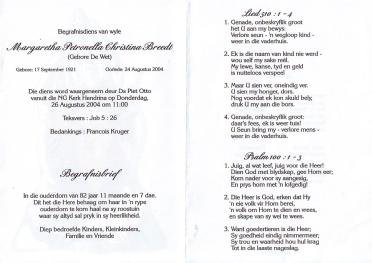 Begrafnisdiens van wyle
Margaretha Petronella Christina Breedt
(Gebore De Wet)
Gebore: 17 September 1921 Oorlede: 24 Augustus 2004
Die diens word waargeneem deur Ds Piet Otto
vanuit die NG Kerk Hendrina op Donderdag,
26 Augustus 2004 om 11:00
Teksvers : Job 5 : 26
Bedankings : Francois Kruger
Begrafnisbrief
In die ouderdom van 82 jaar 11 maande en 7 dae.
Dit het die Here behaag om haar in 'n rype
ouderdom te kom haal na sy roostuin
waar sy altyd sal pryk in sy heerlikheid.
Diep bedroefde Kinders, Kleinkinders,
Familie en Vriende
Lied 310 : 1 - 4
1. Genade, onbeskryflik groot
het U aan my bewys:
Verlore seun - 'n wegloop kind -
weer in die vaderhuis.
2. Ek is die naam van kind nie werd -
wou self my sake reël.
My lewe, kanse, tyd en geld
is nutteloos verspeel
3. Maar U sien ver, oneindig ver.
U sien my honger, dors.
Nog voordat ek kon skuld bely,
druk U my aan die bors.
4. Genade, onbeskryflik groot:
daar's fees, ek is weer tuis!
U Seun bring my - verlore mens -
weer in die vaderhuis.
Psalm 100 : 1 - 3
1. Juig, al wat leef, juig voor die Heer!
Dien God met blydskap, gee Hom eer;
Kom nader voor sy aangesig,
En prys hom met 'n lofgedig!
2. Die Heer is God, erken dat Hy
'n eie volk vir Hom berei,
'n volk om Hom te dien en vrees,
en skape van sy wei te wees.
3. Want goedertieren is die Heer;
Sy goedheid eindig nimmermeer;
Sy trou en waarheid hou hul krag
Tot in die laaste nageslag.